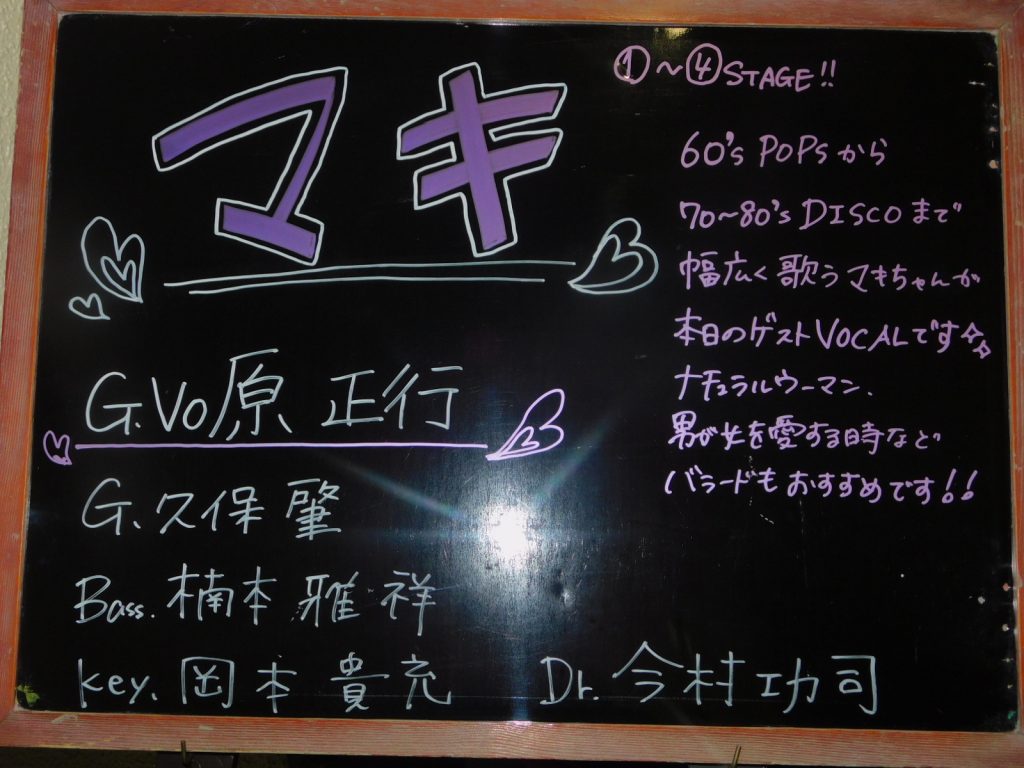 マキ
G.Vo 原 正行
G. 久保 肇
Bass. 楠本 雅祥
Key. 岡本 貴充
Dr. 今村功司
①～④STAGE!!
60's POPSから
70～80's DISCOまで
幅広く歌うマキちゃんが
本日のゲストVOCALです☆☆
ナチュラルウーマン、
男が女を愛する時など
バラードもおすすめです!!